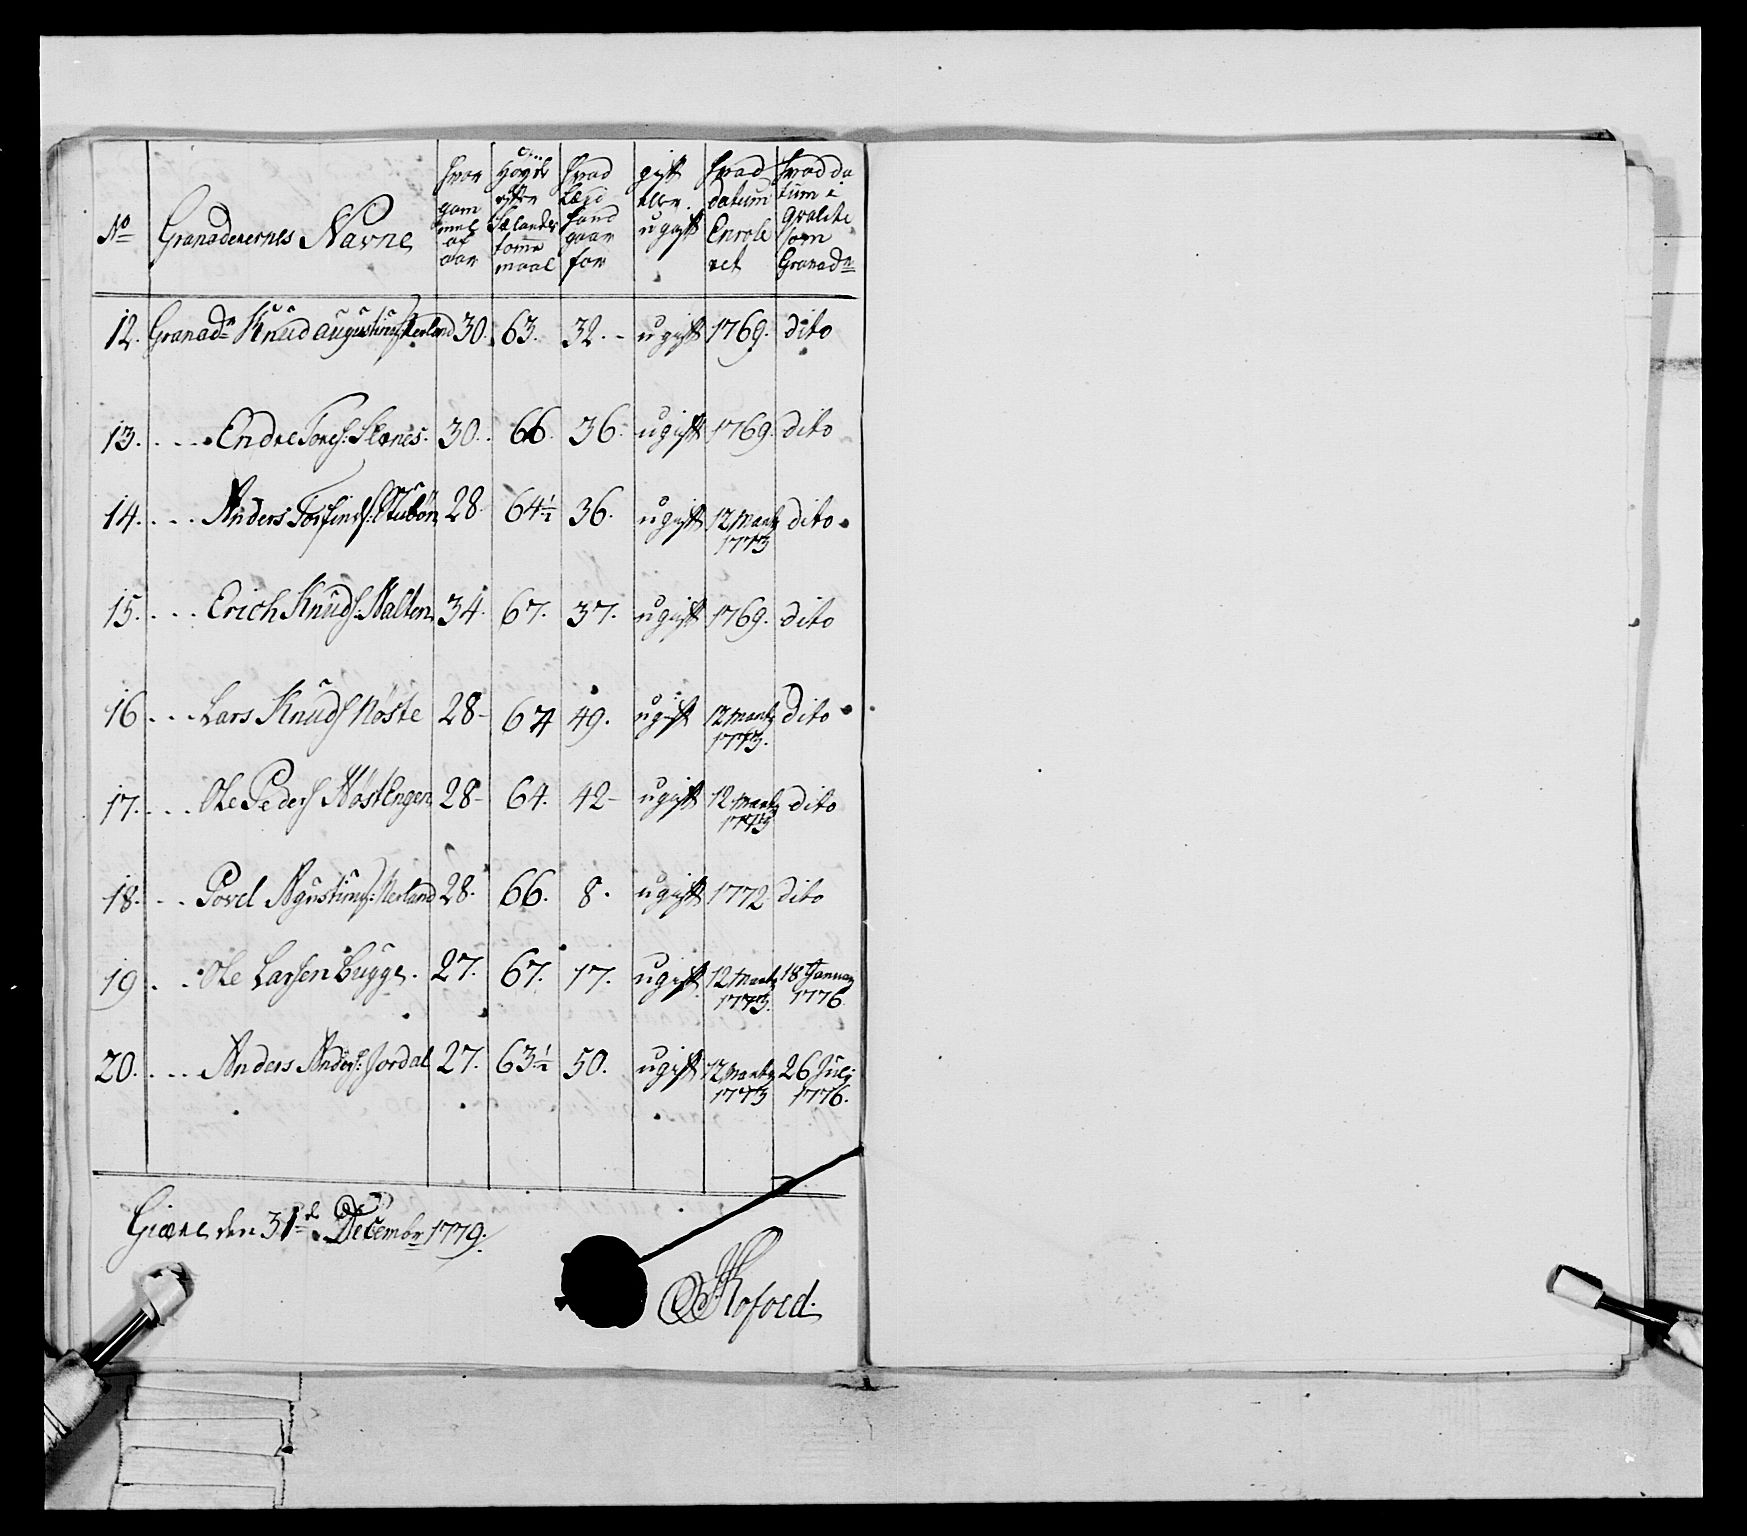 No Granaderernes Navne hvor gam mel af aar Høyde efter Sælandsk tomme maal hvad Lægd hand gaar for gift eller ugift hvad datum Enrole ret hvad da tum i qvalite som Granadr
12. Granadr Knud augustinus Nerland 30. 63. 32. - ugift 1769. dito
13. . . . Endre Tores: Slenes. 30. 66. 36. ugift 1769. dito
14. . . . Anders Torfinds: Stubøn 28. 64½ 36. ugift 12 Martz 1773 dito
15. . . . Erich Knuds: Malten 34. 67. 37. ugift 1769. dito
16 . . . Lars Knuds Nøste 28- 64 49. ugift 12 Martz 1773. dito
17. . . . Ole Peders Nøst Engen 28- 64. 42- ugift 12 Martz 1773 dito
18. . . . Povel Agustinus: Nerland 28. 66. 8. ugift 1772 dito
19 . . . Ole Larsen Bugge. 27. 67. 17. ugift 12 Martz 1773. 18 Januar 1776
20. . . . Anders Anders: Jordal 27. 63½ 50. ugift 12 Martz 1773 26 Julj 1776.
Giære den 31de Decembr 1779.
Kofoed.